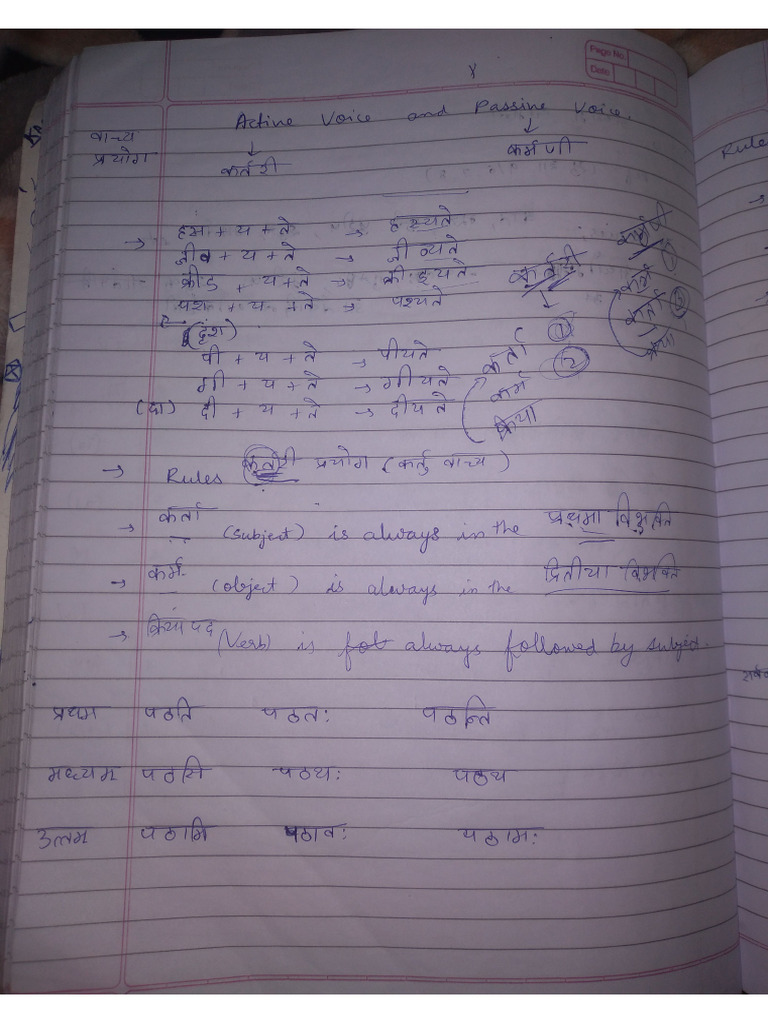 Page No.
Date
Active Voice and Passive Voice.
वाच्य
प्रयोग ↓ कर्तरी ↓ कर्मणी
→ हस + य + ते → हस्यते
जीव + य + ते → जीव्यते
क्रीड + य + ते → क्रीड्यते
पश + य + ते → पश्यते
(दृश)
पी + य + ते → पीयते
गी + य + ते → गीयते
(दा) दी + य + ते → दीयते
कर्तरी
↓
कर्ता ①
कर्म ②
क्रिया
कर्म
कर्ता
क्रिया
→ Rules कर्तरी प्रयोग (कर्तु वाच्य)
→ कर्ता (subject) is always in the प्रथमा विभक्ति
→ कर्म (object) is always in the द्वितीया विभक्ति
→ क्रियापद (Verb) is always followed by subject.
प्रथम पठति पठतः पठन्ति
मध्यम पठसि पठथः पठथ
उत्तम पठामि पठावः पठामः
Rule